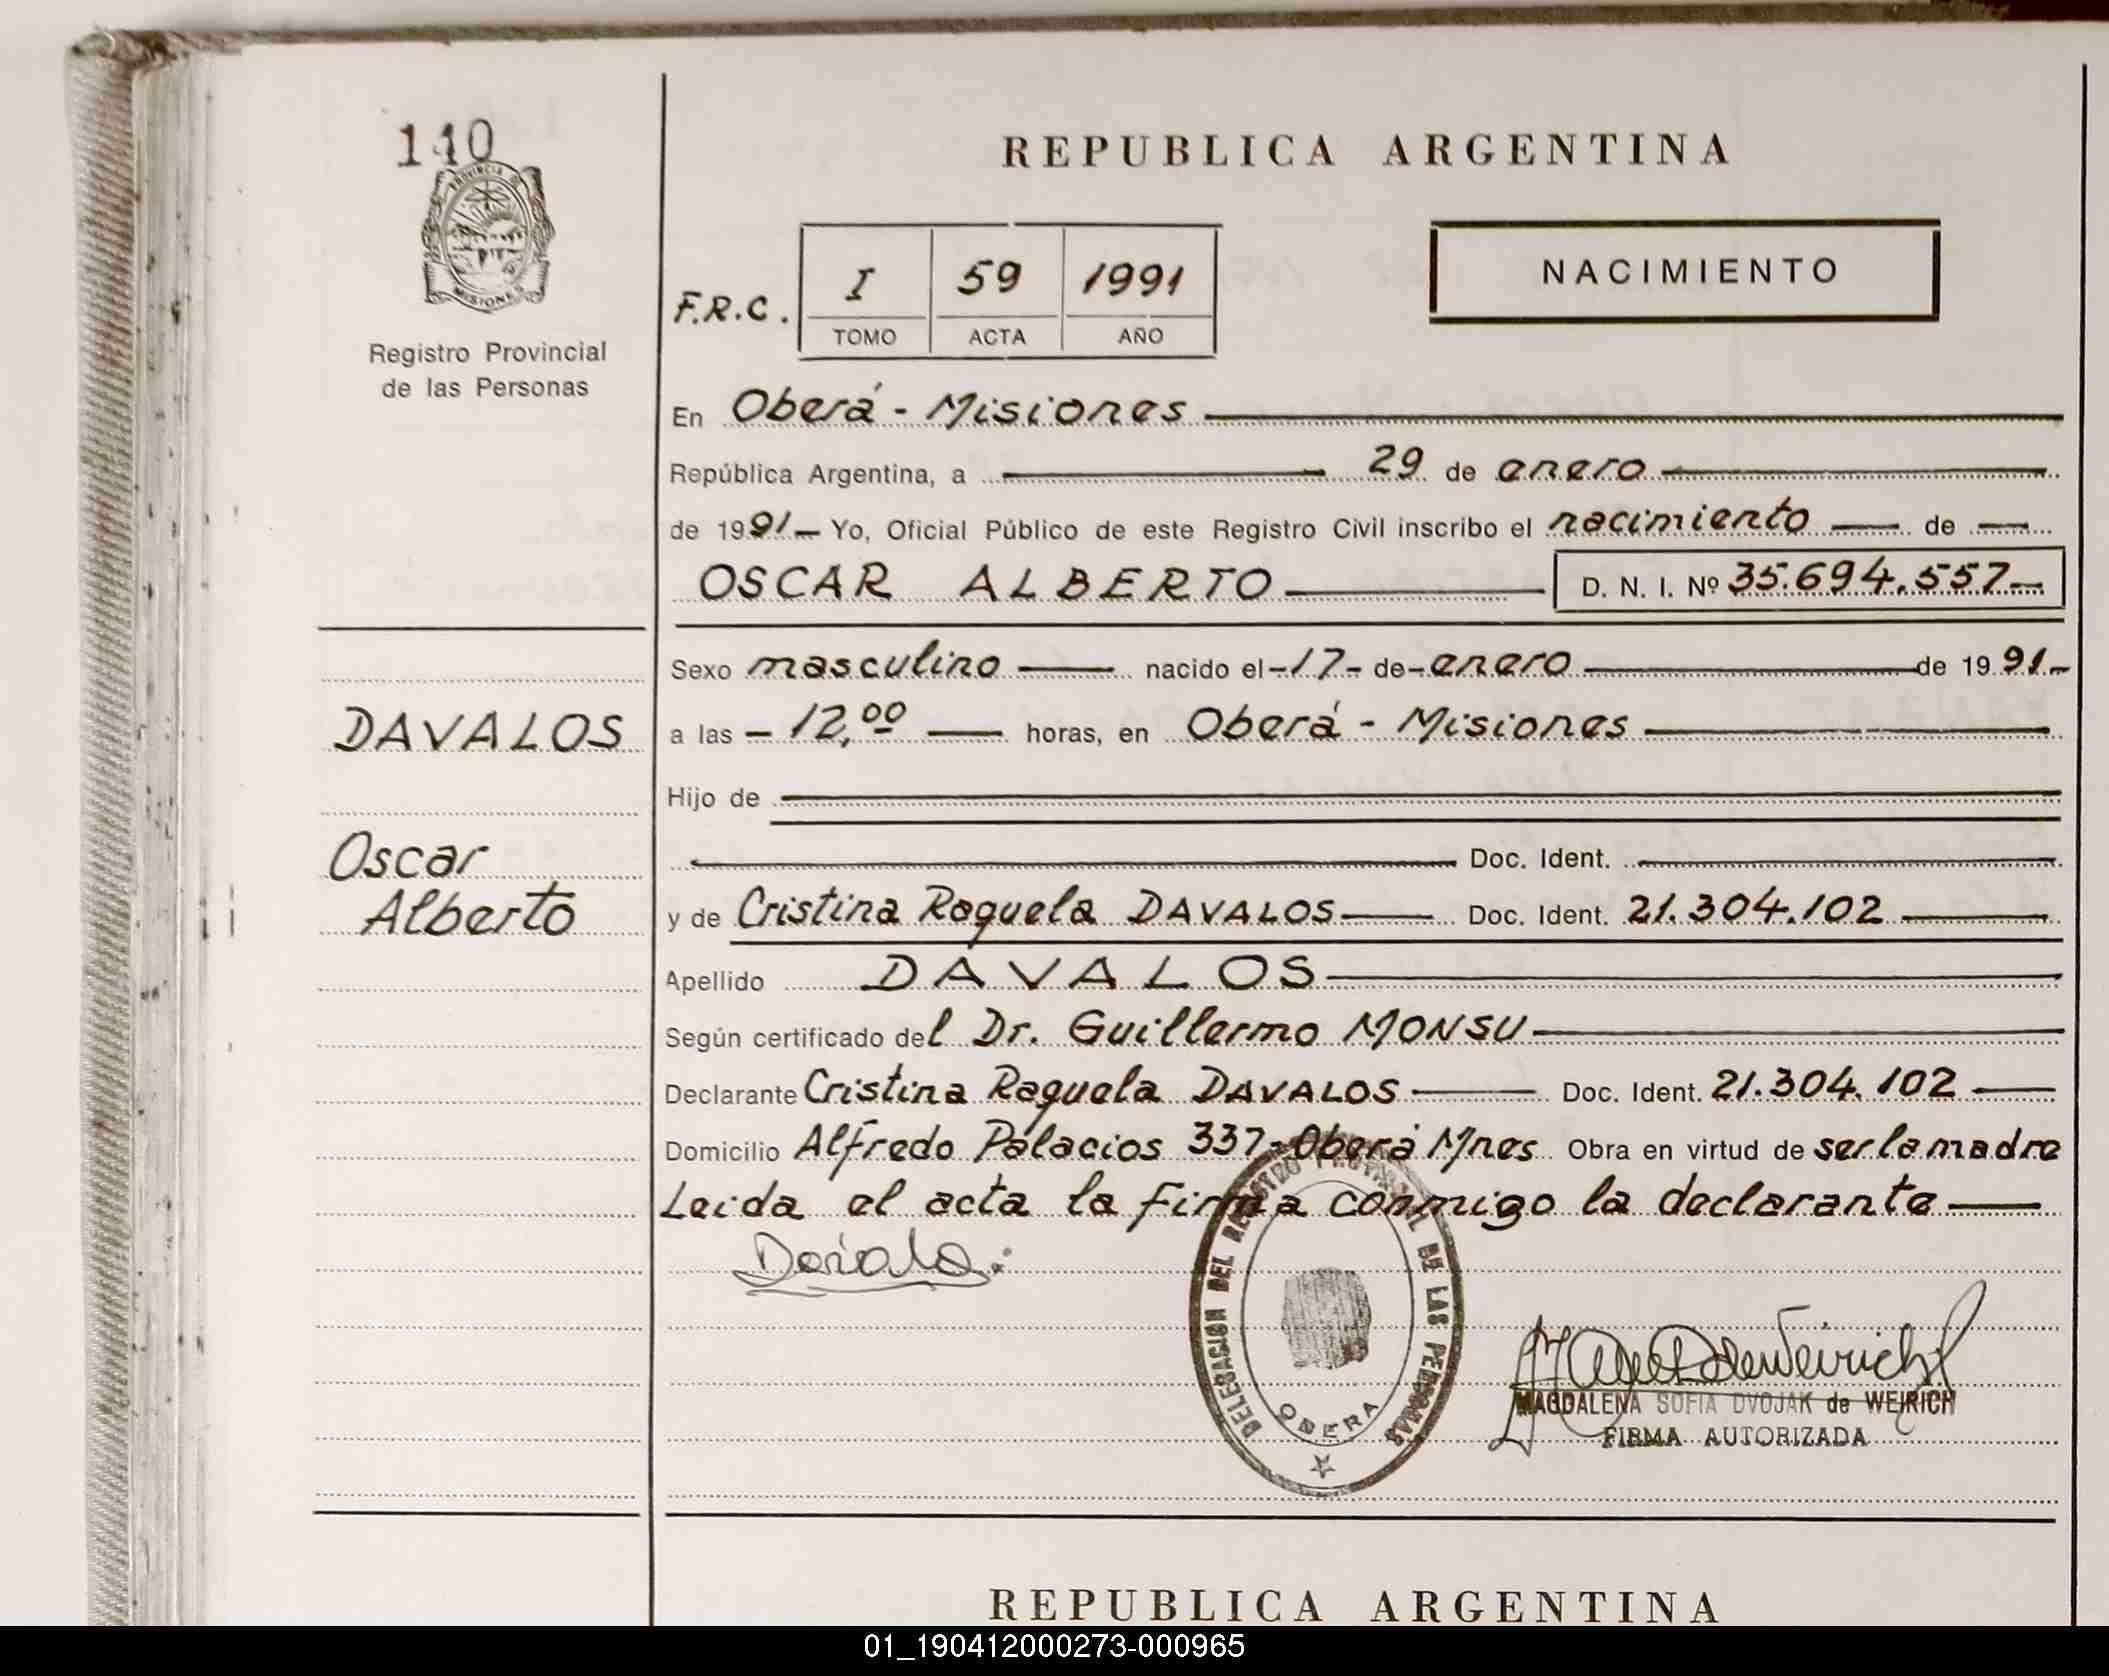 110
PROVINCIA DE
MISIONES
Registro Provincial
de las Personas
REPUBLICA ARGENTINA
F.R.C. I 59 1991
TOMO ACTA AÑO
NACIMIENTO
En Oberá - Misiones
República Argentina, a 29 de enero
de 1991.- Yo, Oficial Público de este Registro Civil inscribo el nacimiento de
OSCAR ALBERTO D. N. I. Nº 35.694.557.-
DAVALOS
Oscar
Alberto
Sexo masculino nacido el -17- de - enero de 1991.-
a las - 12,00 horas, en Oberá - Misiones
Hijo de
Doc. Ident.
y de Cristina Raquela DAVALOS Doc. Ident. 21.304.102
Apellido DAVALOS
Según certificado del Dr. Guillermo MONSU
Declarante Cristina Raquela DAVALOS Doc. Ident. 21.304.102
Domicilio Alfredo Palacios 337- Oberá Mnes Obra en virtud de ser la madre
Leida el acta la firma conmigo la declarante
DELEGACION DEL REGISTRO PROVINCIAL DE LAS PERSONAS
OBERA
MAGDALENA SOFIA DVOJAK de WEIRICH
FIRMA AUTORIZADA
REPUBLICA ARGENTINA
01_190412000273-000965